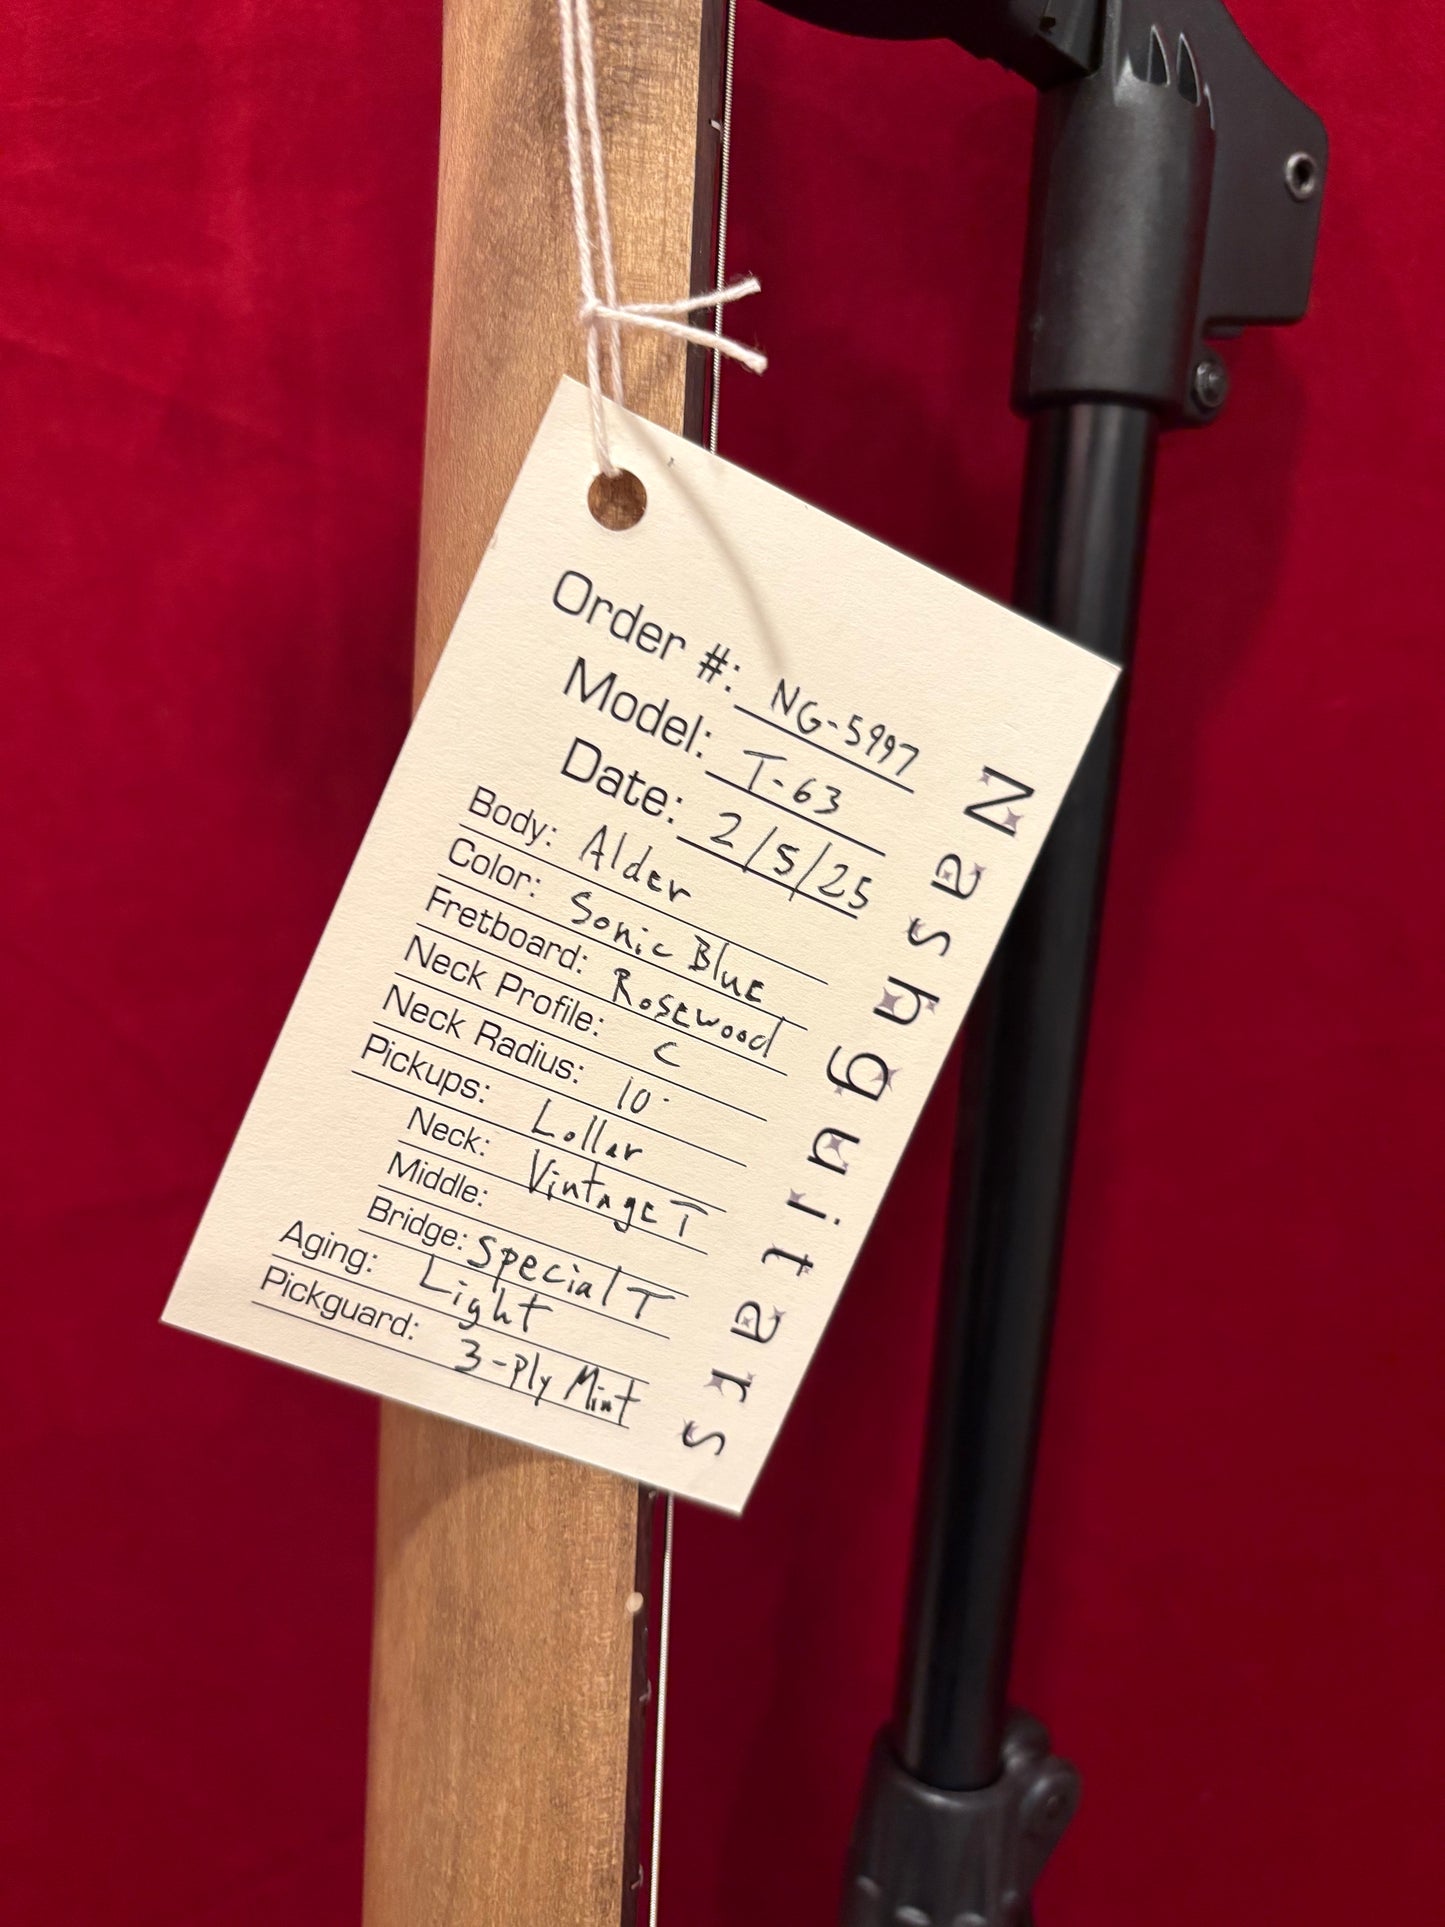 Order #: NG-5997
Model: T-63
Date: 2/5/25
Body: Alder
Color: Sonic Blue
Fretboard: Rosewood
Neck Profile: C
Neck Radius: 10"
Pickups: Lollar
Neck: Vintage T
Middle:
Bridge: Special T
Aging: Light
Pickguard: 3-Ply Mint
Nashguitars